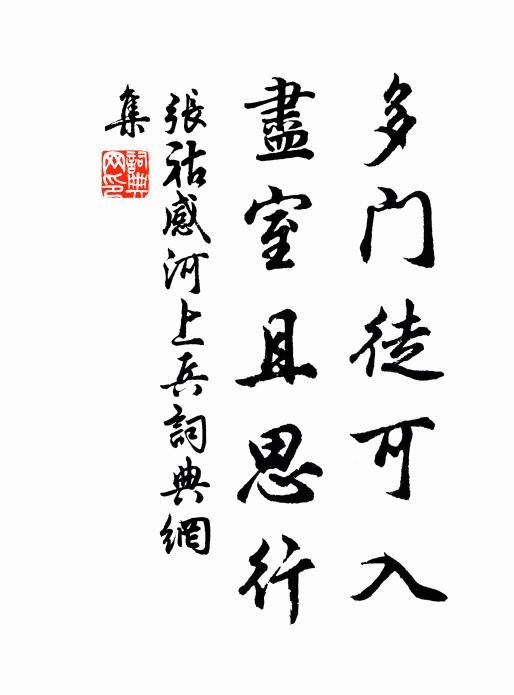 多门徒可入
盡室且思行
張祜感河上兵詞典網
集
詞典
网印